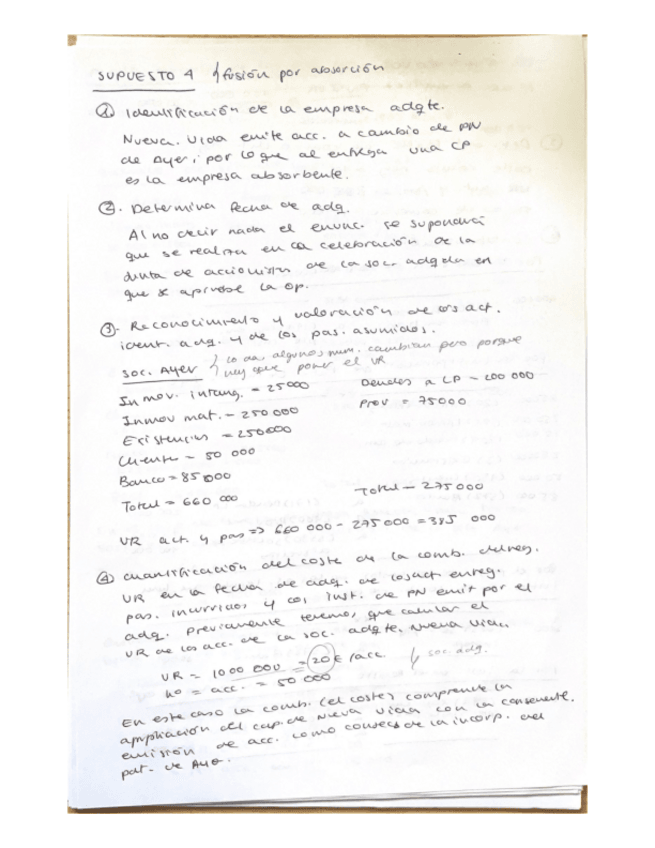 SUPUESTO 4 fusión por absorción
① Identificación de la empresa adqte.
Nueva Vida emite acc. a cambio de PN
de Ayer, por lo que al entrega una CP
es la empresa absorbente.
②. Determina fecha de adq.
Al no decir nada el enunc. se supondrá
que se realiza en la celebración de la
Junta de accionistas de la soc. adqda en
que se apruebe la op.
③. Reconocimiento y valoración de los act.
ident. adq. y de los pas. asumidos.
lo da, algunos num. cambian pero porque
Soc. Ayer hay que poner el VR
Inmov. intang. = 25000 Deudas a CP - 200 000
Inmov mat. - 250 000 Prov = 75000
Existencias = 250000
Clientes - 50 000
Banco = 85000
Total = 660 000 Total - 275000
VR act. y pas => 660 000 - 275 000 = 385 000
④ cuantificación del coste de la comb. de neg.
VR en la fecha de adq. de los act. entreg.
pas. incurridos y los inst. de PN emit por el
adq. previamente tenemos que calcular el
VR de los acc. de la soc. adqte. Nueva Vida.
VR = 1000 000 = 20 € /acc. soc. adq.
no = acc. = 50 000
En este caso la comb. (el coste) comprende la
ampliación del cap. de Nueva Vida con la consecuente.
emisión de acc. como consec. de la incorp. del
pat. de